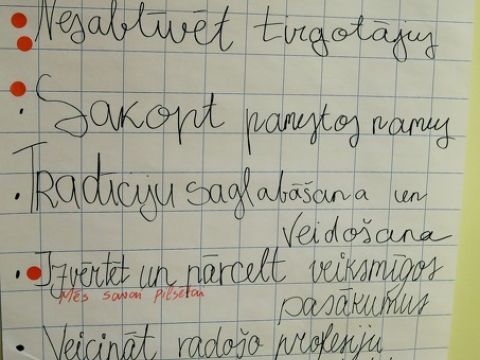 Nesabtīvēt tirgotājus
Sakopt pamestos namus
Tradīciju saglabāšana un
veidošana
Izvērtēt un pārcelt veiksmīgos
Mēs savai pilsētai
pasākumus
Veicināt radošo profesiju